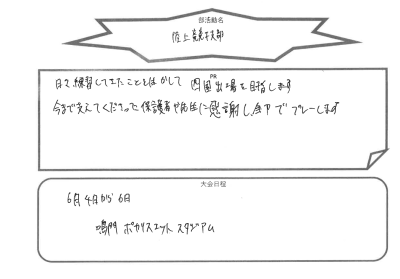 部活動名
陸上競技部
PR
日々練習してきたことをいかして 四国出場を目指します
今まで支えてくださった保護者や先生に感謝し全力でプレーします
大会日程
6月4日から6日
鳴門ポカリスエットスタジアム